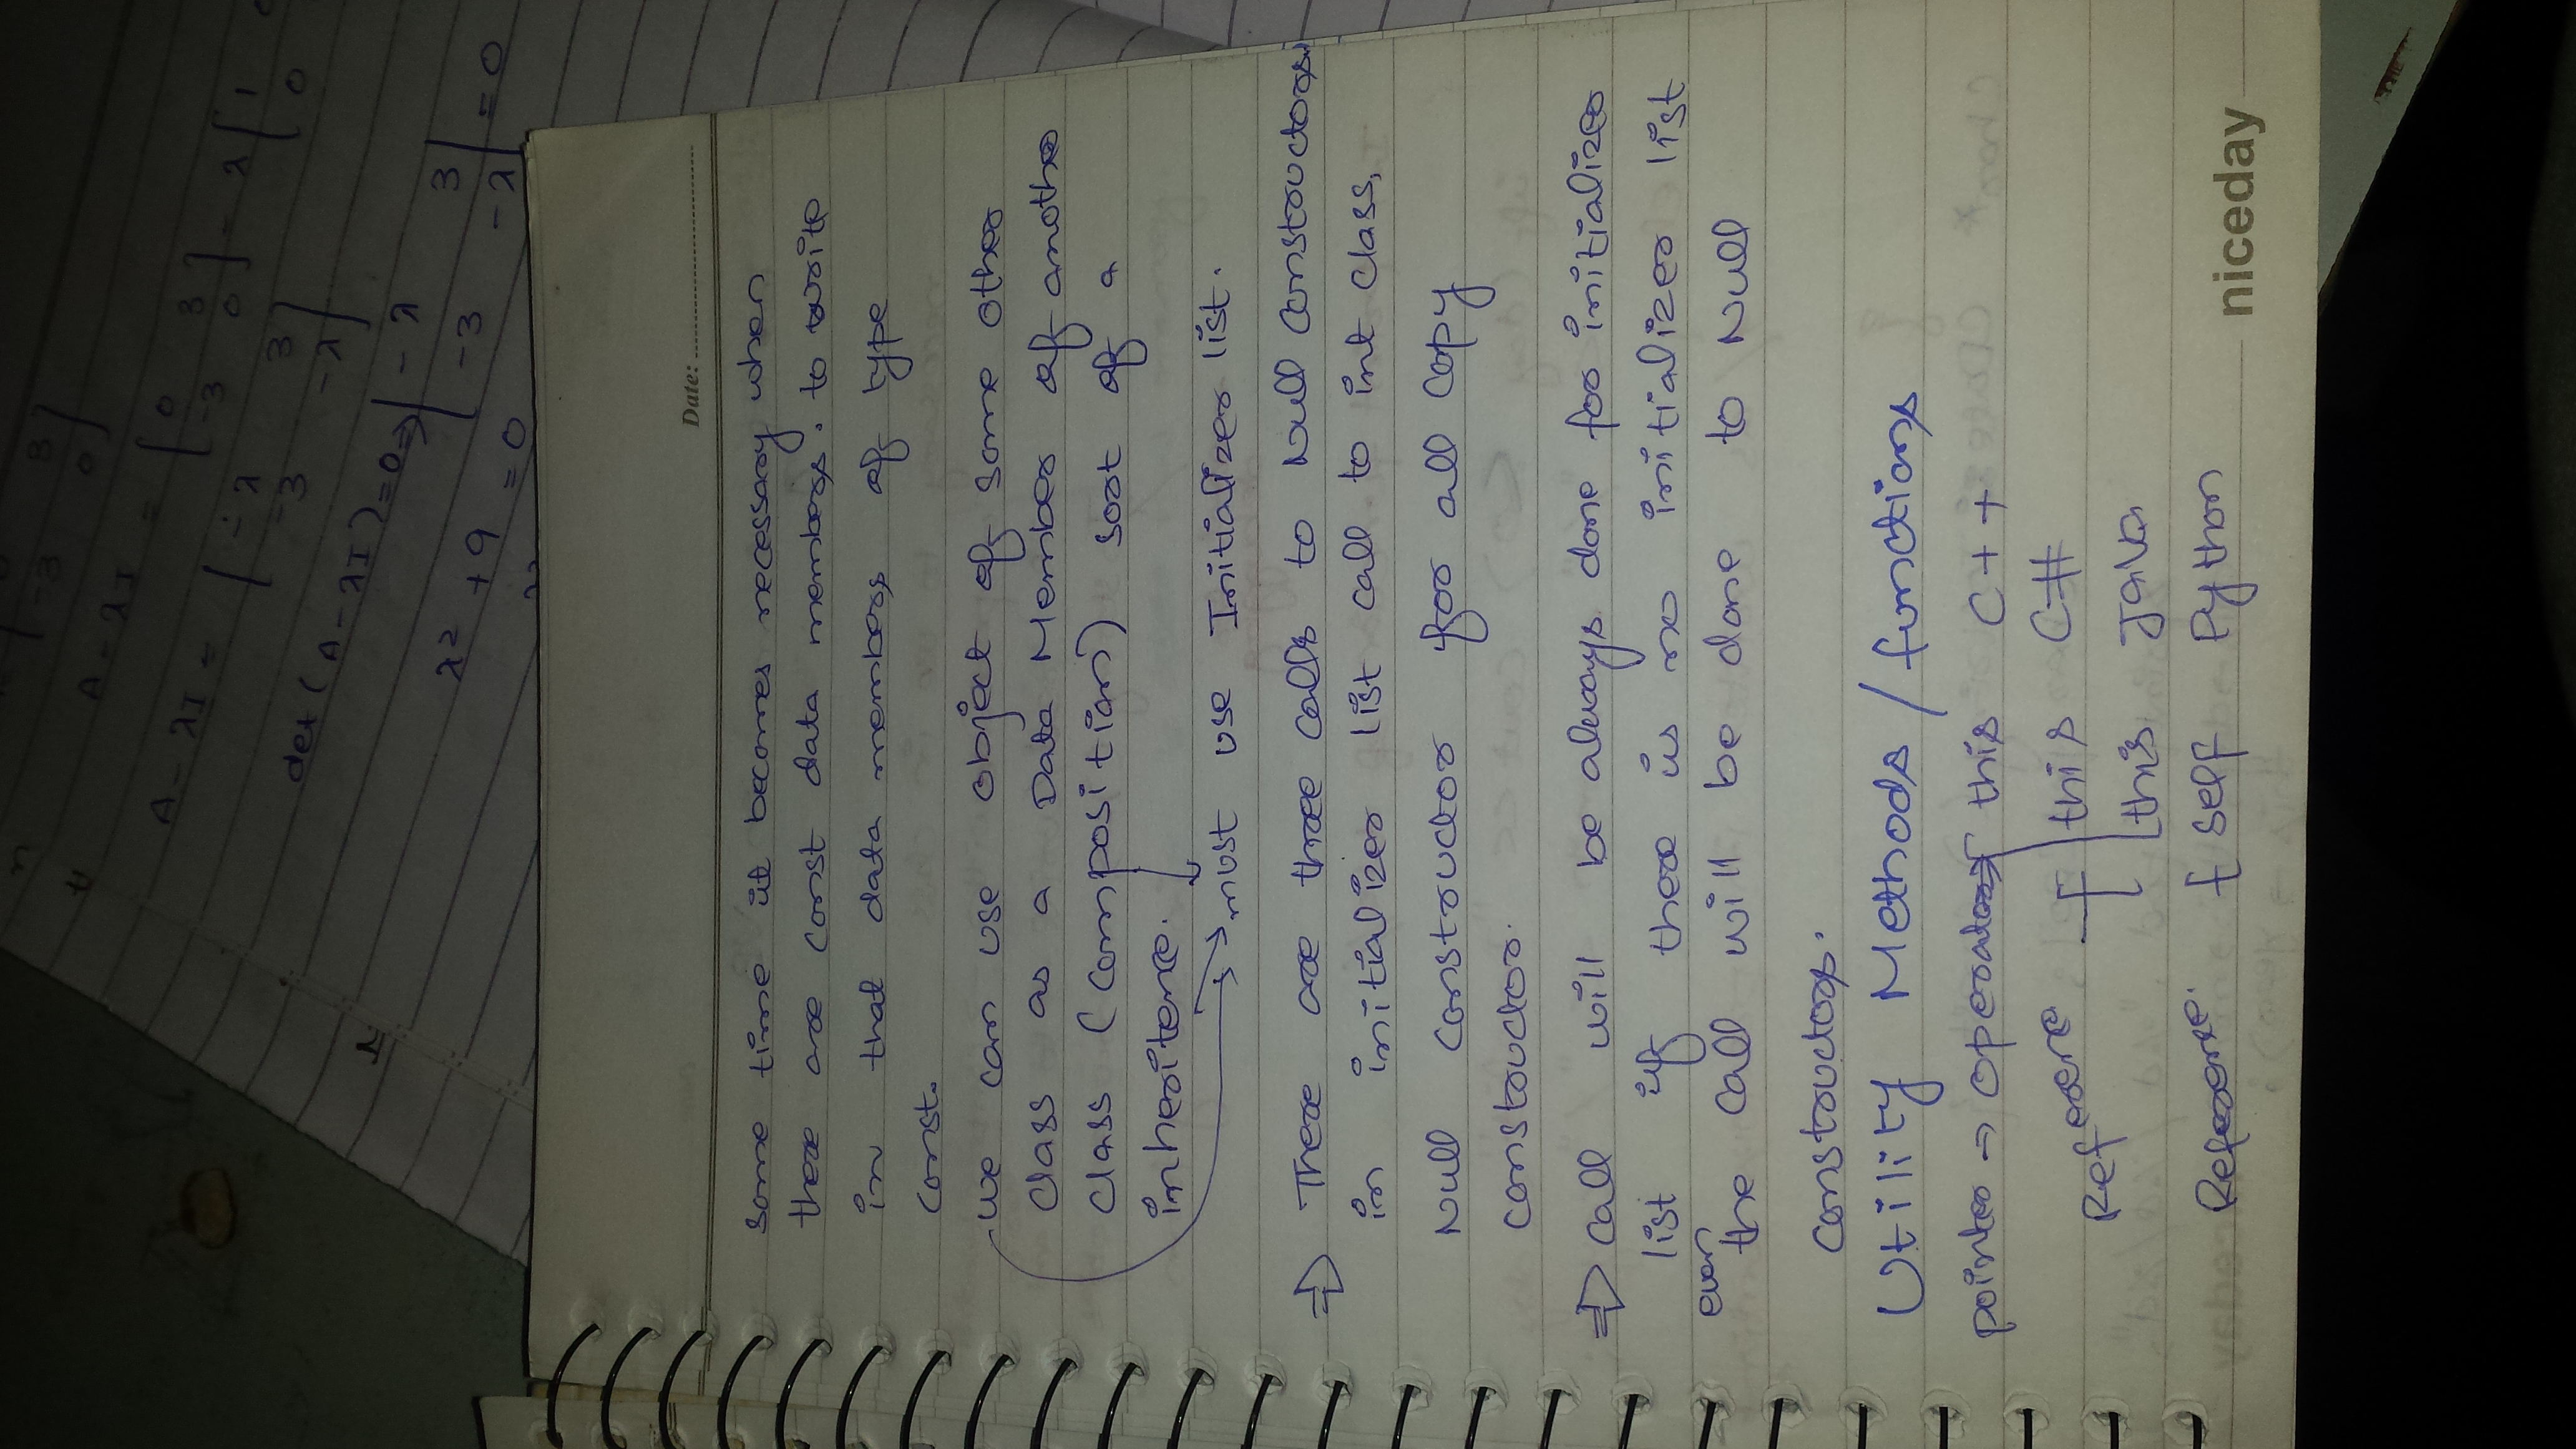 -3 3
0
A - λI = [ 0 3
-3 0 ] - λ [ 1
0
A - λI = [ -λ 3
-3 -λ ]
det (A - λI) = 0 ⇒ | -λ 3
-3 -λ | = 0
λ² + 9 = 0
Date:
some time it becomes necessary when
there are const data members. to write
in that data members of type
const.
we can use object of some other
class as a Data Member of another
class (composition) sort of a
inheritence.
must use Initializer list.
⇒ There are three calls to Null constructors
in initializer list call to int class,
Null constructor for all copy
constructor.
⇒ call will be always done for initializer
list if there is no initializer list
even
the call will be done to Null
constructors.
Utility Methods / functions
pointer → operator this C++
Reference this C#
this Java
Reference. { self Python
niceday